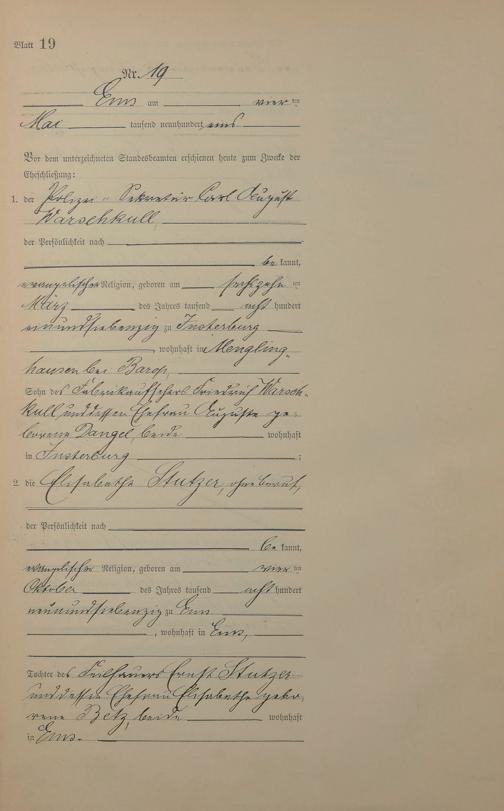 Blatt 19
Nr. 19
Ems am vierten
Mai tausend neunhundert eins
Vor dem unterzeichneten Standesbeamten erschienen heute zum Zwecke der
Eheschließung:
1. der Polizei-Sekretär Carl August
Warschkull
der Persönlichkeit nach
be kannt,
evangelischer Religion, geboren am sechzehnten
März des Jahres tausend acht hundert
undsiebenzig zu Insterburg
, wohnhaft in Mengling-
hausen bei Barop,
Sohn des Fabrikaufsehers Friedrich Warsch-
kull und dessen Ehefrau Auguste ge-
borene Dangel, beide wohnhaft
in Insterburg ;
2. die Elisabetha Stutzer, ohne Beruf,
der Persönlichkeit nach
be kannt,
evangelischer Religion, geboren am vierten
Oktober des Jahres tausend acht hundert
neunundsiebenzig zu Ems
, wohnhaft in Ems,
Tochter des Ernst Stutzer
und dessen Ehefrau Elisabetha gebo-
rene Betz, beide wohnhaft
in Ems.